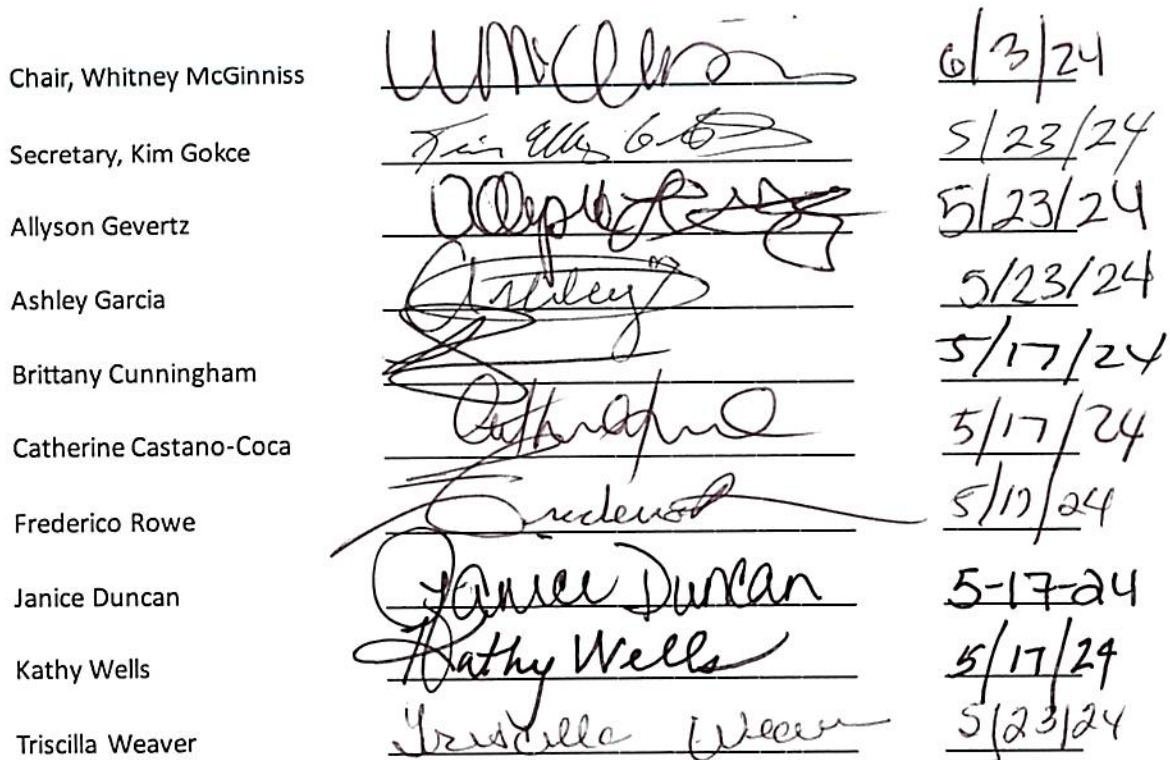 Chair, Whitney McGinniss 6/3/24
Secretary, Kim Gokce 5/23/24
Allyson Gevertz 5/23/24
Ashley Garcia Ashley 5/23/24
Brittany Cunningham 5/17/24
Catherine Castano-Coca 5/17/24
Frederico Rowe 5/17/24
Janice Duncan Janice Duncan 5-17-24
Kathy Wells Kathy Wells 5/17/24
Triscilla Weaver Triscilla Weaver 5/23/24